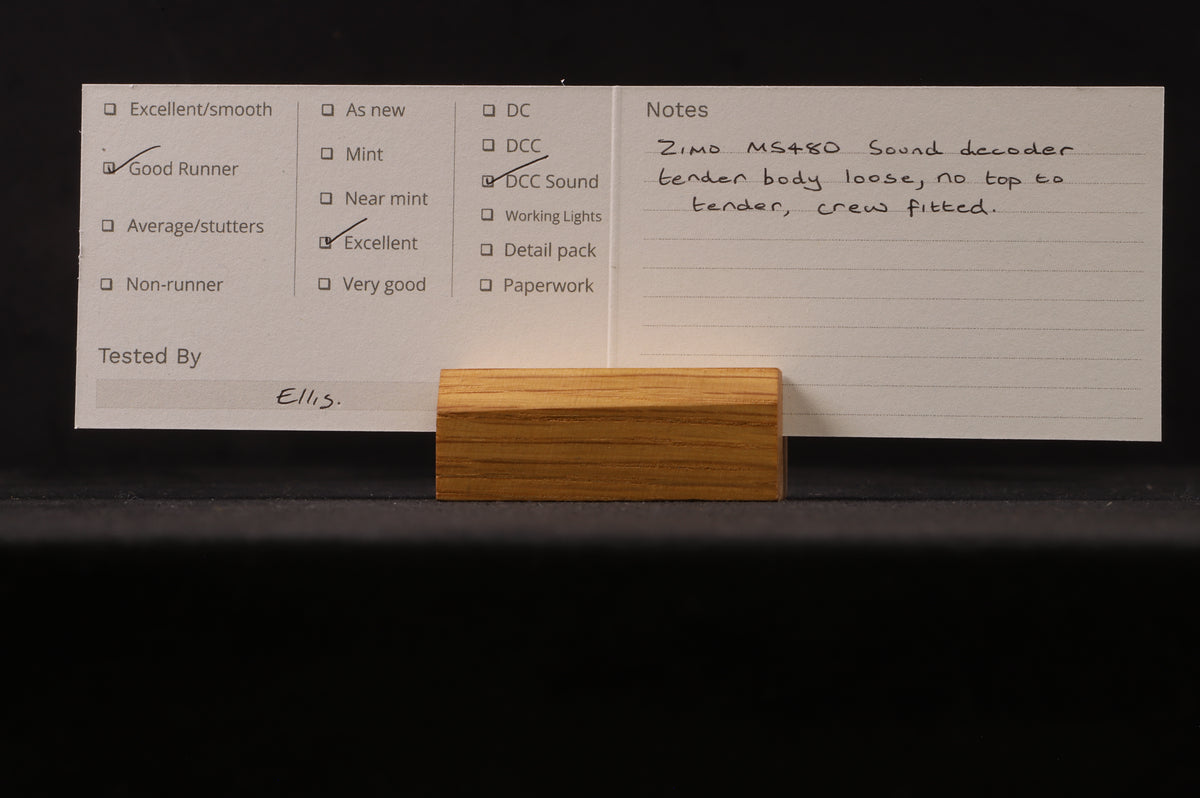 Excellent/smooth
Good Runner
Average/stutters
Non-runner
As new
Mint
Near mint
Excellent
Very good
DC
DCC
DCC Sound
Working Lights
Detail pack
Paperwork
Tested By
Ellis.
Notes
Zimo MS480 Sound decoder
tender body loose, no top to
tender, crew fitted.